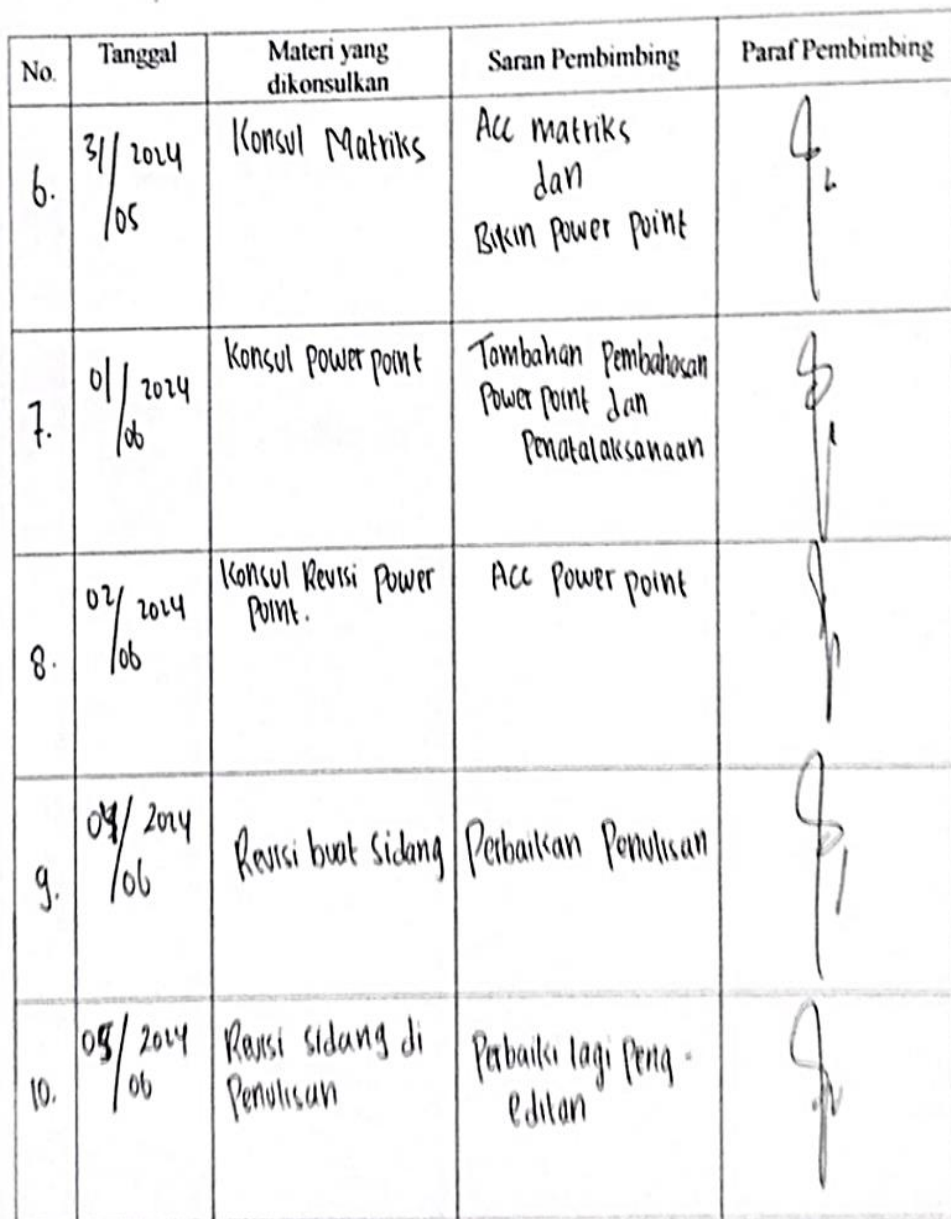 No. Tanggal Materi yang dikonsulkan Saran Pembimbing Paraf Pembimbing
6. 31/05/2024 Konsul Matriks Acc matriks
dan
Bikin Power Point
7. 01/06/2024 Konsul Power point Tambahan Pembahasan
Power point dan
Penatalaksanaan
8. 02/06/2024 Konsul Revisi Power Acc Power point
Point.
9. 04/06/2024 Revisi buat Sidang Perbaikan Penulisan
10. 05/06/2024 Revisi sidang di Perbaiki lagi Peng-
Penulisan editan